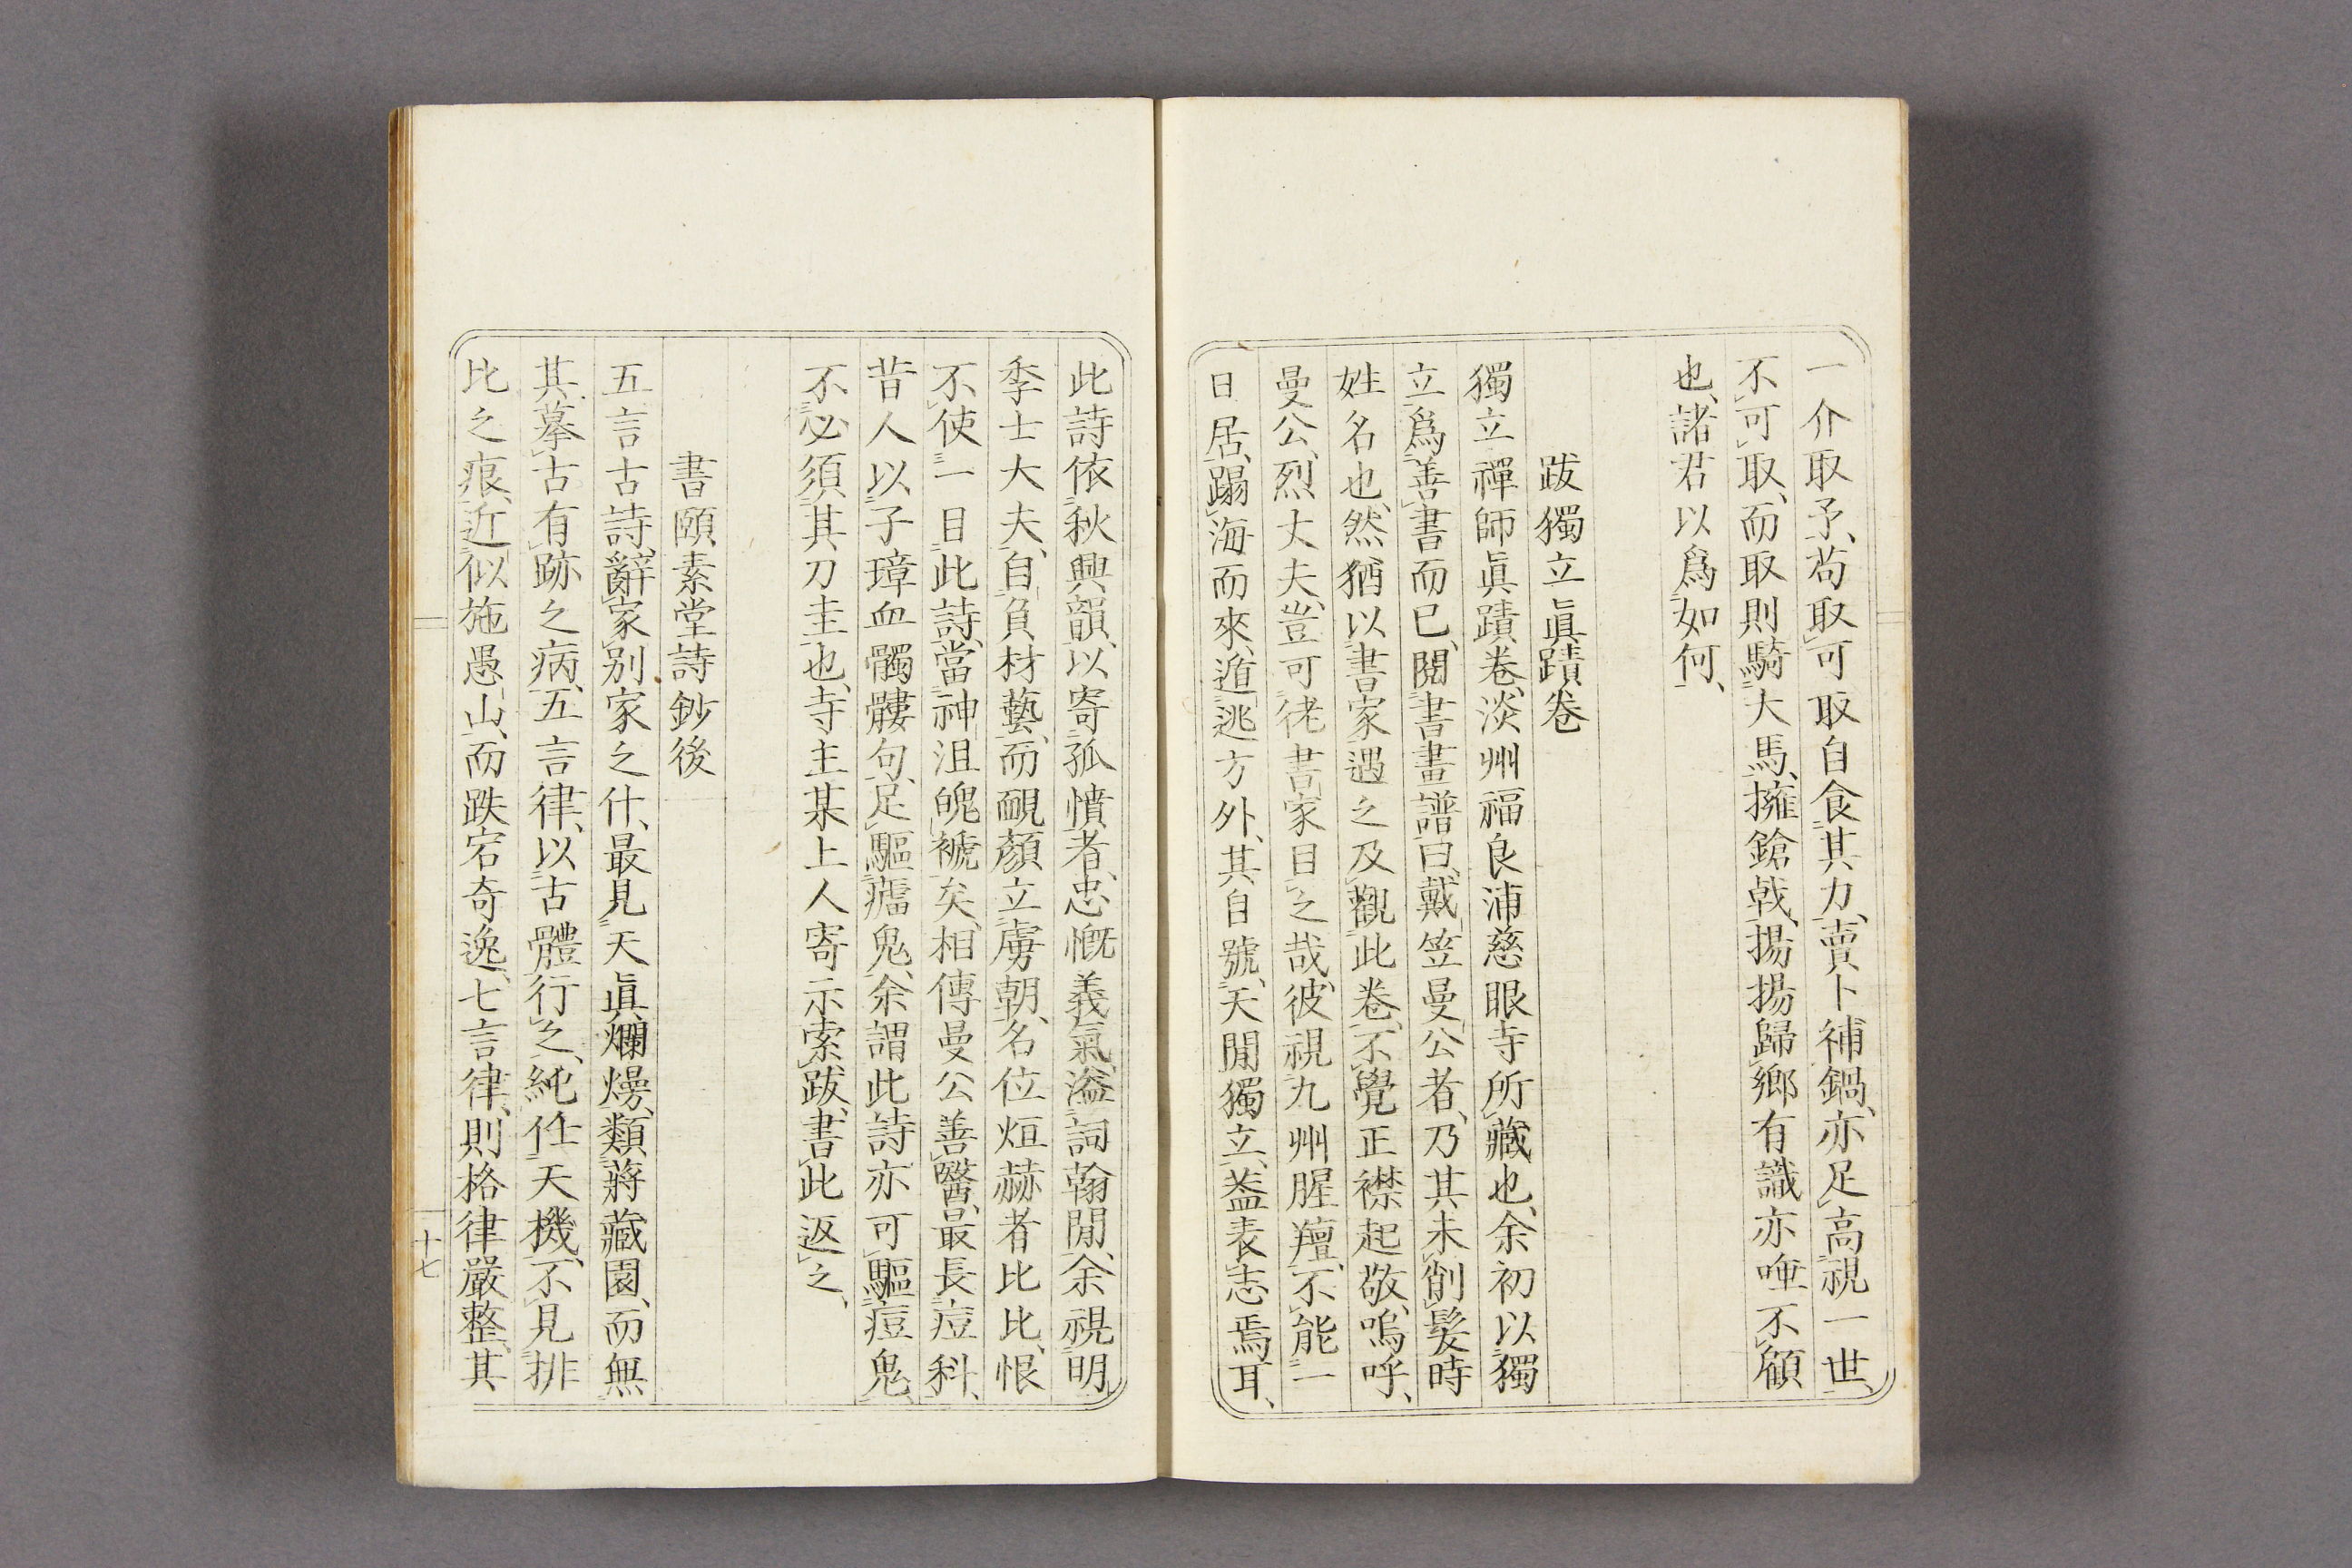 一介取予、苟取可取自食其力、賣卜補鍋、亦足高視一世、
不可取、而取則騎大馬、擁鎗戟、揚揚歸鄉有識亦唾不顧
也、諸君以爲如何、
跋獨立眞蹟卷
獨立禪師眞蹟卷、淡州福良浦慈眼寺所藏也、余初以獨
立爲善書而已、閱書畫譜曰、戴笠曼公者、乃其未削髮時
姓名也、然猶以書家遇之及觀此卷、不覺正襟起敬、嗚呼、
曼公、烈丈夫、豈可徒書家目之哉、彼視九州腥羶、不能一
日居、蹋海而來、遁逃方外、其自號、天閒獨立、葢表志焉耳、
此詩依秋興韻、以寄孤憤者、忠慨義氣、溢詞翰閒、余視明
季士大夫、自負材藝、而靦顏立虜朝、名位烜赫者比比、恨
不使一目此詩、當神沮魄褫矣、相傳曼公善醫、最長痘科、
昔人以子璋血髑髏句、足驅瘧鬼、余謂此詩亦可驅痘鬼
不必須其刀圭也、寺主某上人寄示索跋、書此返之、
書頤素堂詩鈔後
五言古詩、辭家別家之什、最見天眞爛熳、類蔣藏園、而無
其摹古有跡之病、五言律、以古體行之、純任天機、不見排
比之痕、近似施愚山、而跌宕奇逸、七言律、則格律嚴整、其
十七